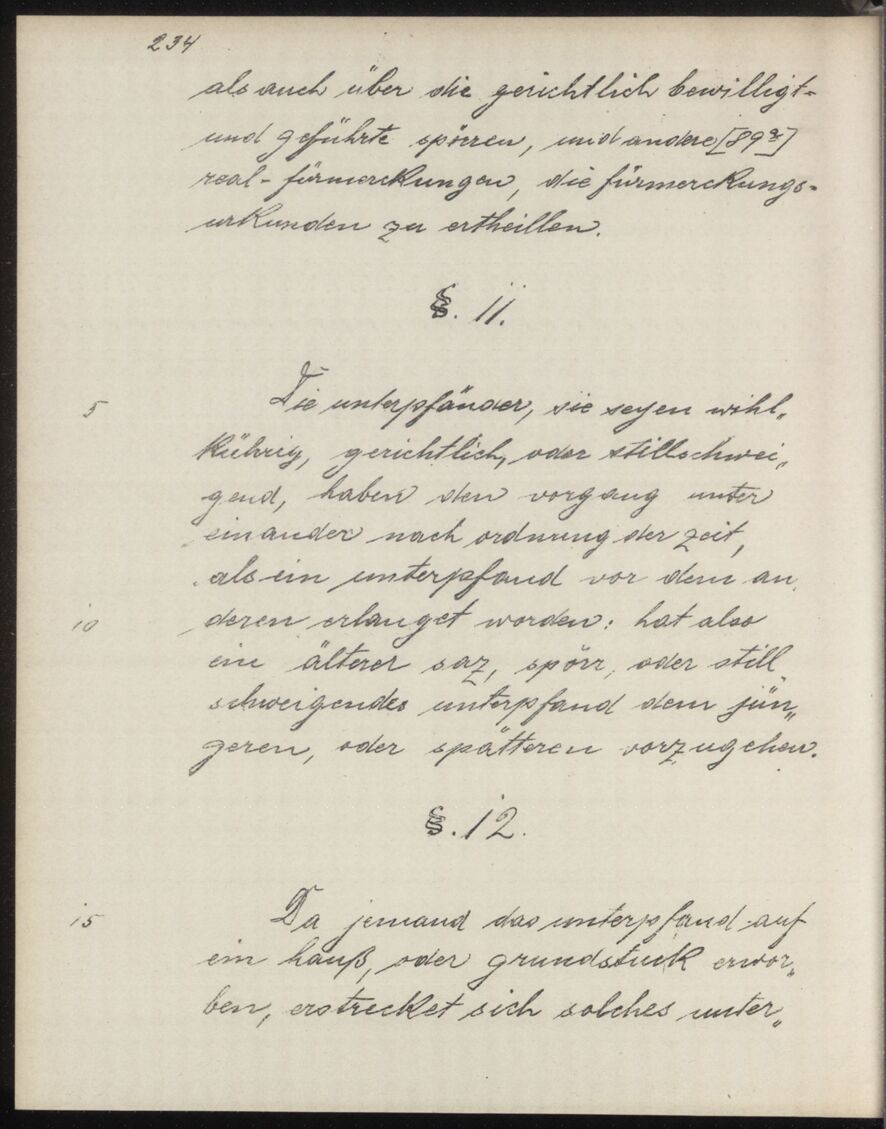 234
als auch über die gerichtlich bewilligt-
und geführte spörren, und andere [89r]
real-fürmerckungen, die fürmerckungs-
urkunden zu ertheillen.
§. 11.
5 Die unterpfänder, sie seyen wihl„
kührig, gerichtlich, oder stillschwei„
gend, haben den vorgang unter
einander nach ordnung der zeit,
als ein unterpfand vor dem an„
10 deren erlanget worden: hat also
ein älterer saz, spörr, oder still„
schweigendes unterpfand dem jün„
geren, oder spätteren vorzugehen.
§. 12.
15 Da jemand das unterpfand auf
ein hauß, oder grundstuck erwor„
ben, erstrecket sich solches unter„